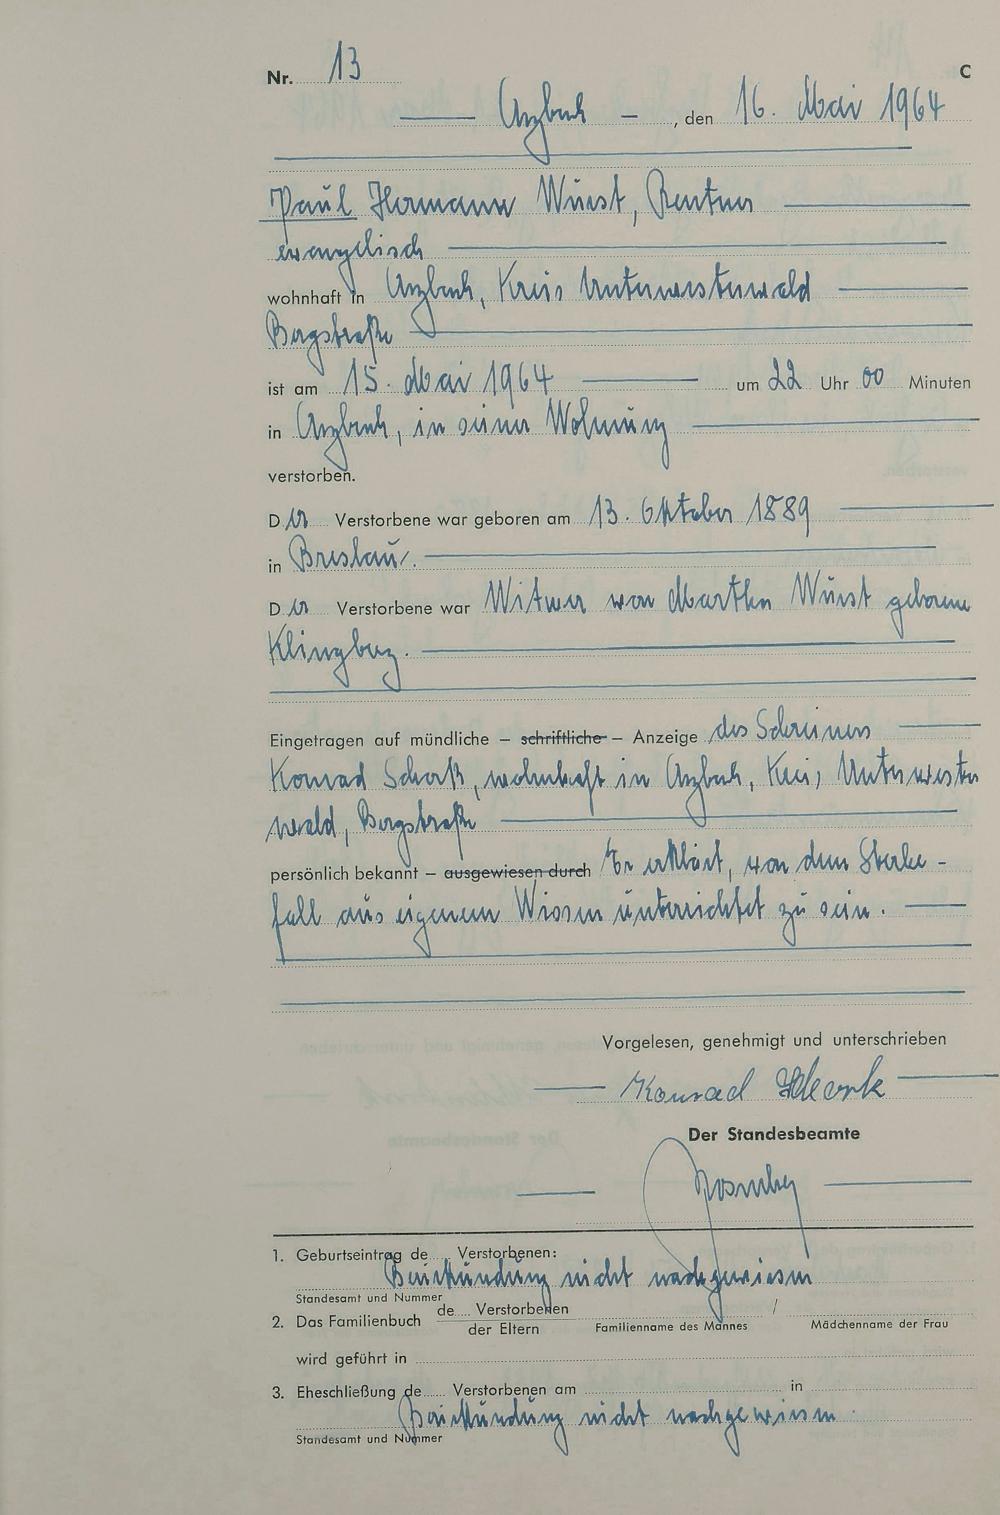 Nr. 13 C
Arzbach, den 16. Mai 1964
Paul Hermann Wurst, Rentner
evangelisch
wohnhaft in Arzbach, Kreis Unterwesterwald
Bergstraße
ist am 15. Mai 1964 um 22 Uhr 00 Minuten
in Arzbach, in seiner Wohnung
verstorben.
Der Verstorbene war geboren am 13. Oktober 1889
in Breslau.
Der Verstorbene war Witwer von Martha Wurst geborene
Eingetragen auf mündliche – schriftliche – Anzeige des Schreiners
Konrad, wohnhaft in Arzbach, Kreis Unterwester
wald, Bergstraße
persönlich bekannt – ausgewiesen durch Er erklärt, von dem Sterbe-
fall aus eigenem Wissen unterrichtet zu sein.
Vorgelesen, genehmigt und unterschrieben
Konrad
Der Standesbeamte
1. Geburtseintrag de Verstorbenen:
Beurkundung nicht nachgewiesen
Standesamt und Nummer
2. Das Familienbuch de Verstorbenen /
der Eltern Familienname des Mannes Mädchenname der Frau
wird geführt in
3. Eheschließung de Verstorbenen am in
Beurkundung nicht nachgewiesen.
Standesamt und Nummer